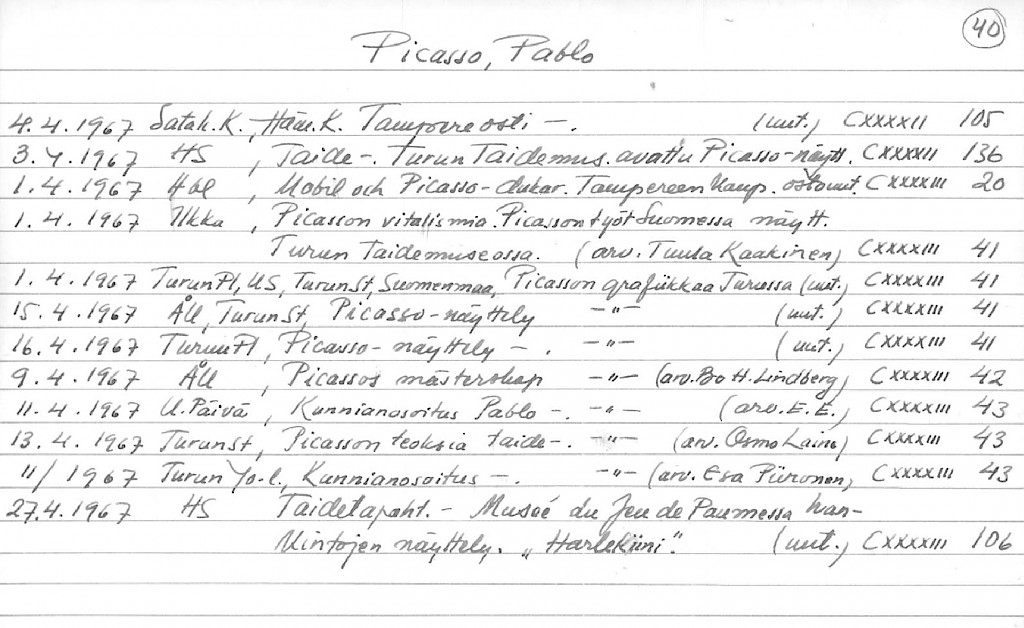 40
Picasso, Pablo
4.4.1967 Satak.K., Häm.K. Tampere osti –. (uut.) CXXXXII 105
3.4.1967 HS, Taide–. Turun Taidemus. avattu Picasso-näytt. CXXXXII 136
1.4.1967 Hbl, Mobil och Picasso-dukar. Tampereen kaup. ostouut. CXXXXIII 20
1.4.1967 Ilkka, Picasson vitalismia. Picasson työt Suomessa näytt.
Turun Taidemuseossa. (arv. Tuula Kaakinen) CXXXXIII 41
1.4.1967 TurunPl, US, TurunSt, Suomenmaa, Picasson grafiikkaa Turussa (uut.) CXXXXIII 41
15.4.1967 ÅU, TurunSt, Picasso-näyttely –"– (uut.) CXXXXIII 41
16.4.1967 TurunPl, Picasso-näyttely –. –"– (uut.) CXXXXIII 41
9.4.1967 ÅU, Picassos mästerskap –"– (arv. Bo H. Lindberg) CXXXXIII 42
11.4.1967 U.Päivä, Kunnianosoitus Pablo –. –"– (arv. E.E.) CXXXXIII 43
13.4.1967 TurunSt, Picasson teoksia taide–. –"– (arv. Osmo Laine) CXXXXIII 43
11/1967 Turun Yo-l., Kunnianosoitus –. –"– (arv. Esa Piironen) CXXXXIII 43
27.4.1967 HS Taidetapaht. – Museé du Jeu de Paumessa han-
kintojen näyttely. „Harlekiini". (uut.) CXXXXIII 106